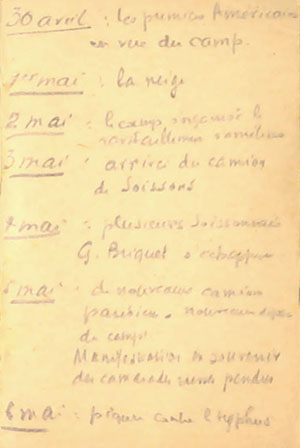 30 avril : les premiers Américains
en vue du camp.
1er mai : la neige
2 mai : le camp organisé le
ravitaillement s'améliore
3 mai : arrivée du camion
de Soissons
4 mai : plusieurs Soissonnais
G. Briquet s'échappent
5 mai : de nouveaux camions
parisiens - nouveaux départs
du camp
Manifestation en souvenir
des camarades russes pendus
6 mai : piqure contre le typhus